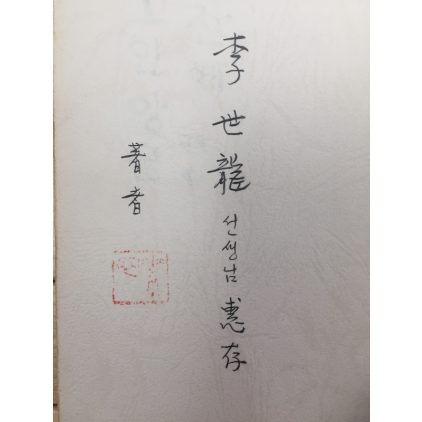 李世龍 선생님 惠存
著者